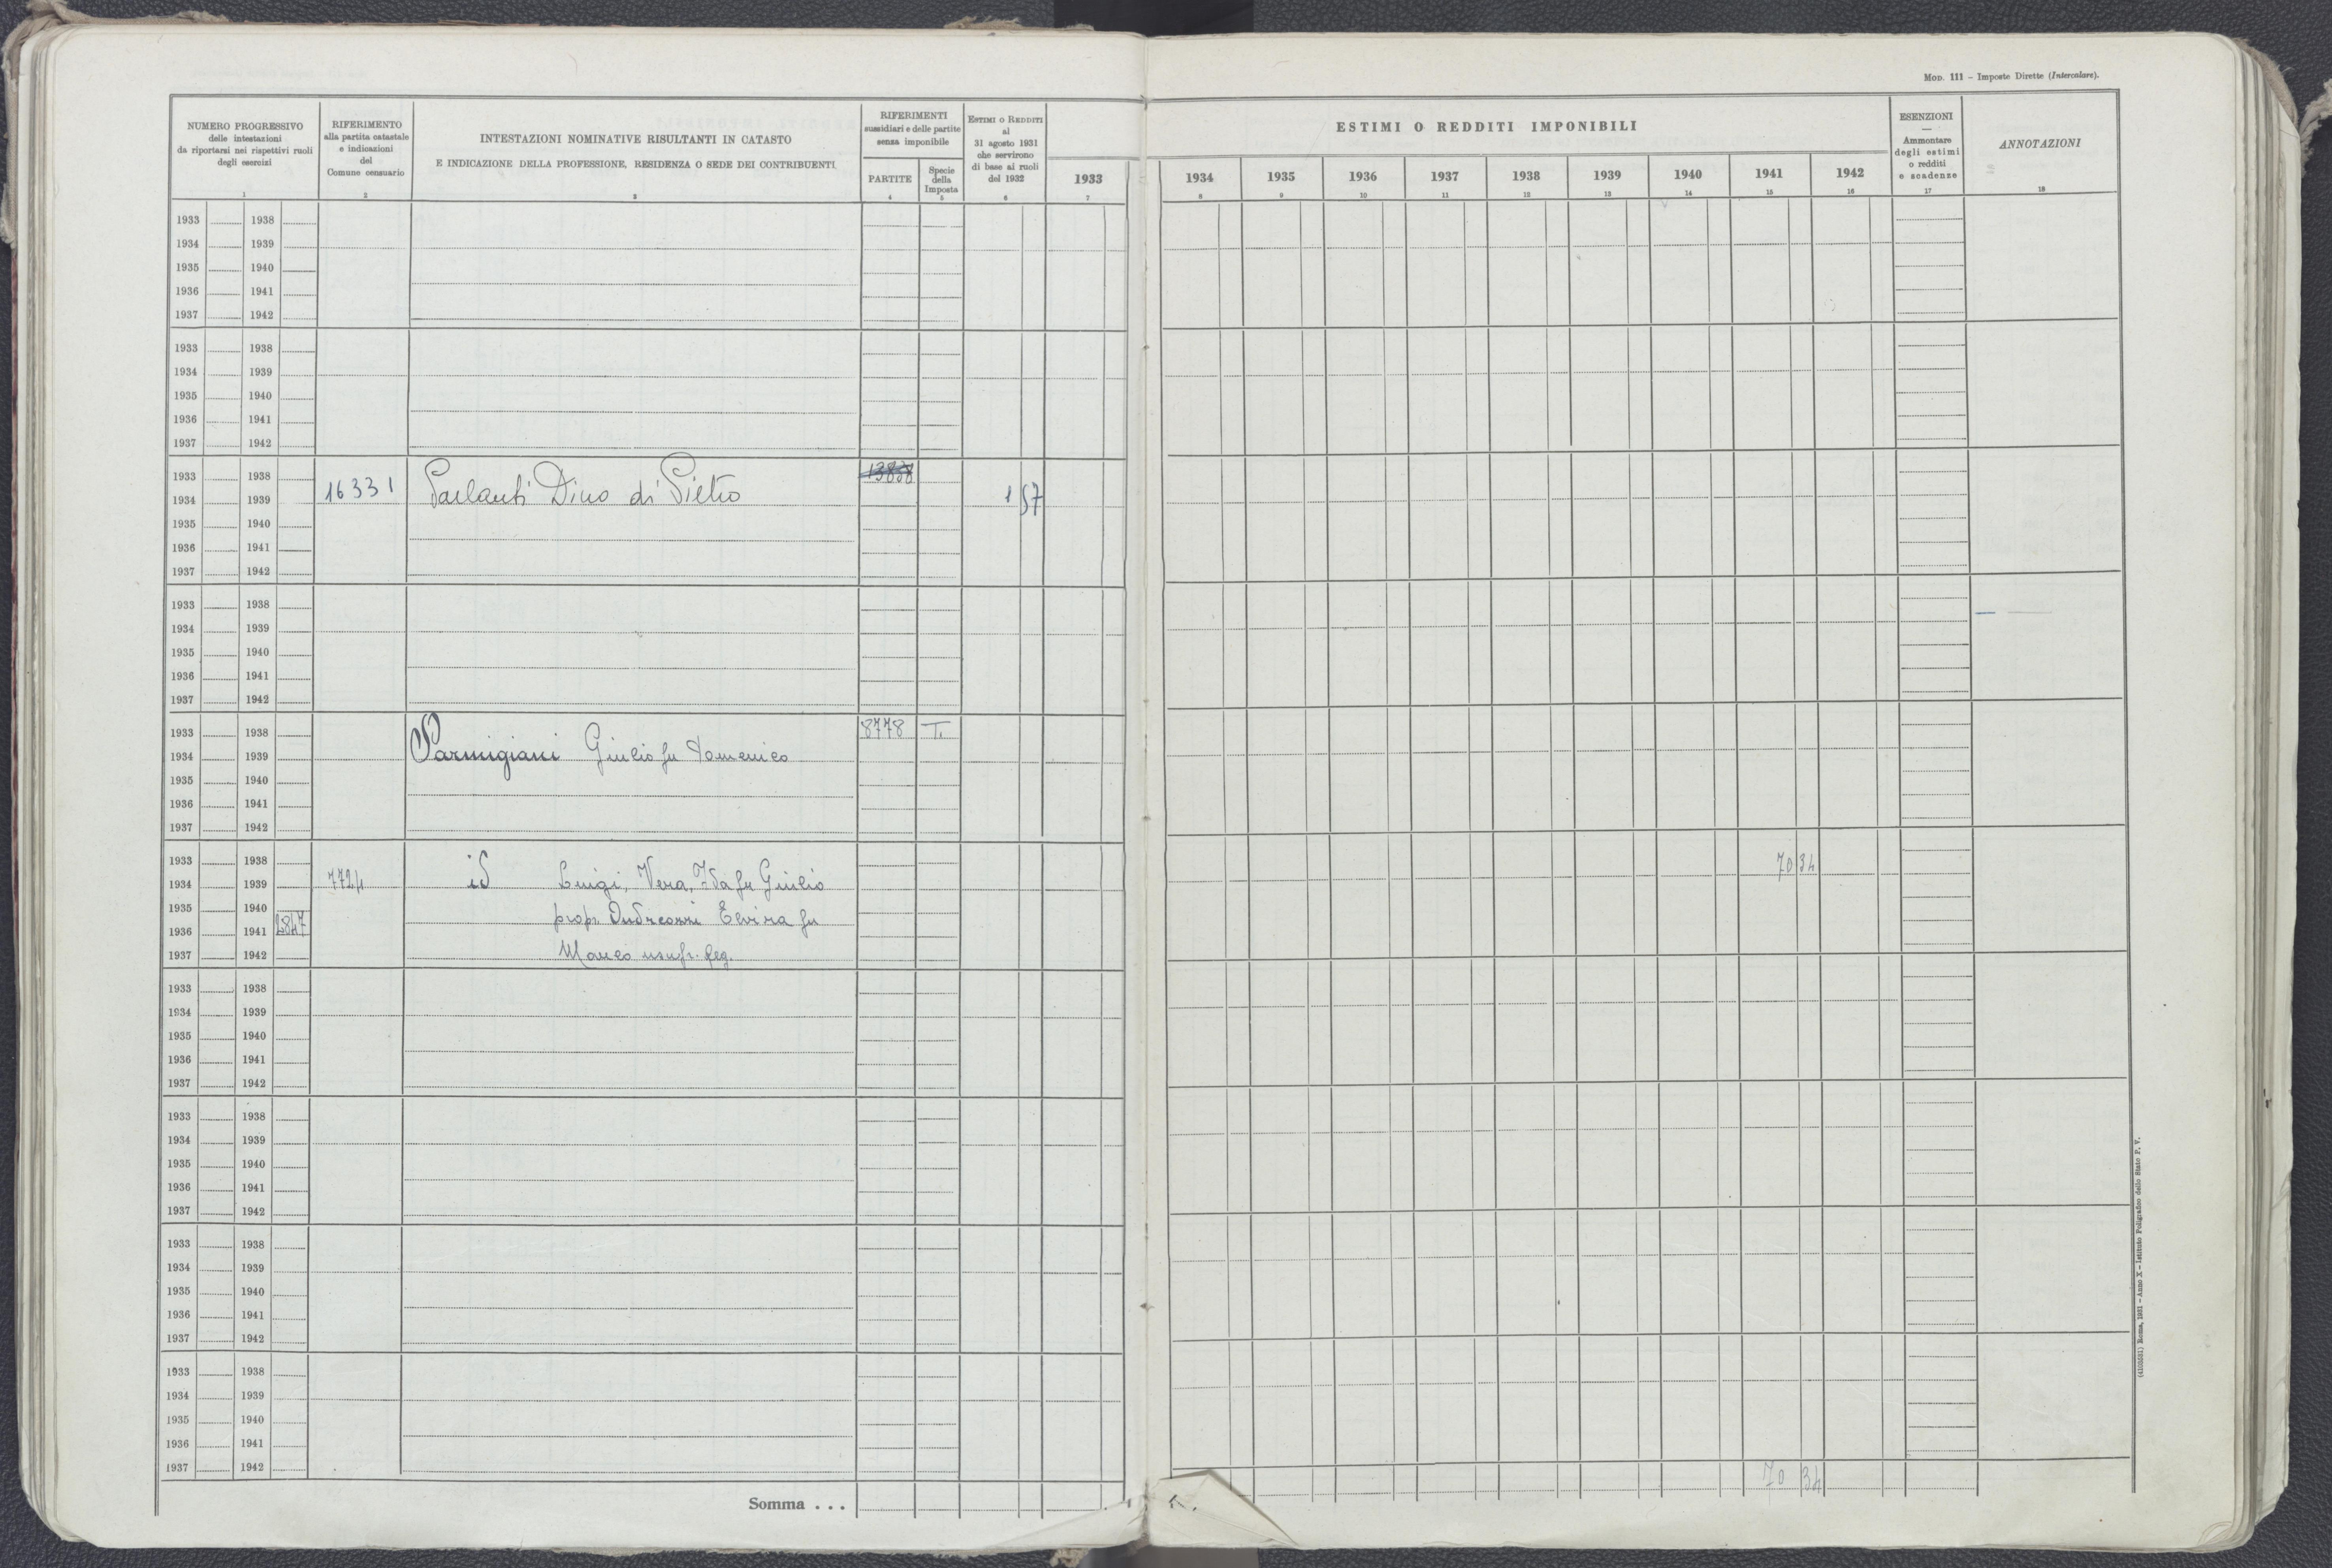 MOD. 111 - Imposte Dirette (Intercalare).
NUMERO PROGRESSIVO
delle intestazioni
da riportarsi nei rispettivi ruoli
degli esercizi
1
RIFERIMENTO
alla partita catastale
e indicazioni
del
Comune censuario
2
INTESTAZIONI NOMINATIVE RISULTANTI IN CATASTO
E INDICAZIONE DELLA PROFESSIONE, RESIDENZA O SEDE DEI CONTRIBUENTI
3
RIFERIMENTI
sussidiari e delle partite
senza imponibile
PARTITE
4
Specie
della
Imposta
5
ESTIMI O REDDITI
al
31 agosto 1931
che servirono
di base ai ruoli
del 1932
6
ESTIMI O REDDITI IMPONIBILI
1933
7
1934
8
1935
9
1936
10
1937
11
1938
12
1939
13
1940
14
1941
15
1942
16
ESENZIONI
—
Ammontare
degli estimi
o redditi
e scadenze
17
ANNOTAZIONI
18
1933 1938
1934 1939
1935 1940
1936 1941
1937 1942
1933 1938
1934 1939
1935 1940
1936 1941
1937 1942
1933 1938
1934 1939 16331 Parlanti Dino di Pietro 1 57
1935 1940
1936 1941
1937 1942
1933 1938
1934 1939
1935 1940
1936 1941
1937 1942
1933 1938 8778 T.
1934 1939 Parmigiani Giulio fu Domenico
1935 1940
1936 1941
1937 1942
1933 1938
1934 1939 7724 id Luigi, Vera, Ida fu Giulio 70 34
1935 1940 prop. Andreozzi Elvira fu
1936 1941 2847
1937 1942 Marco usufr. leg.
1933 1938
1934 1939
1935 1940
1936 1941
1937 1942
1933 1938
1934 1939
1935 1940
1936 1941
1937 1942
1933 1938
1934 1939
1935 1940
1936 1941
1937 1942
1933 1938
1934 1939
1935 1940
1936 1941
1937 1942
Somma . . . 70 34
(4103551) Roma, 1931 - Anno X - Istituto Poligrafico dello Stato P. V.